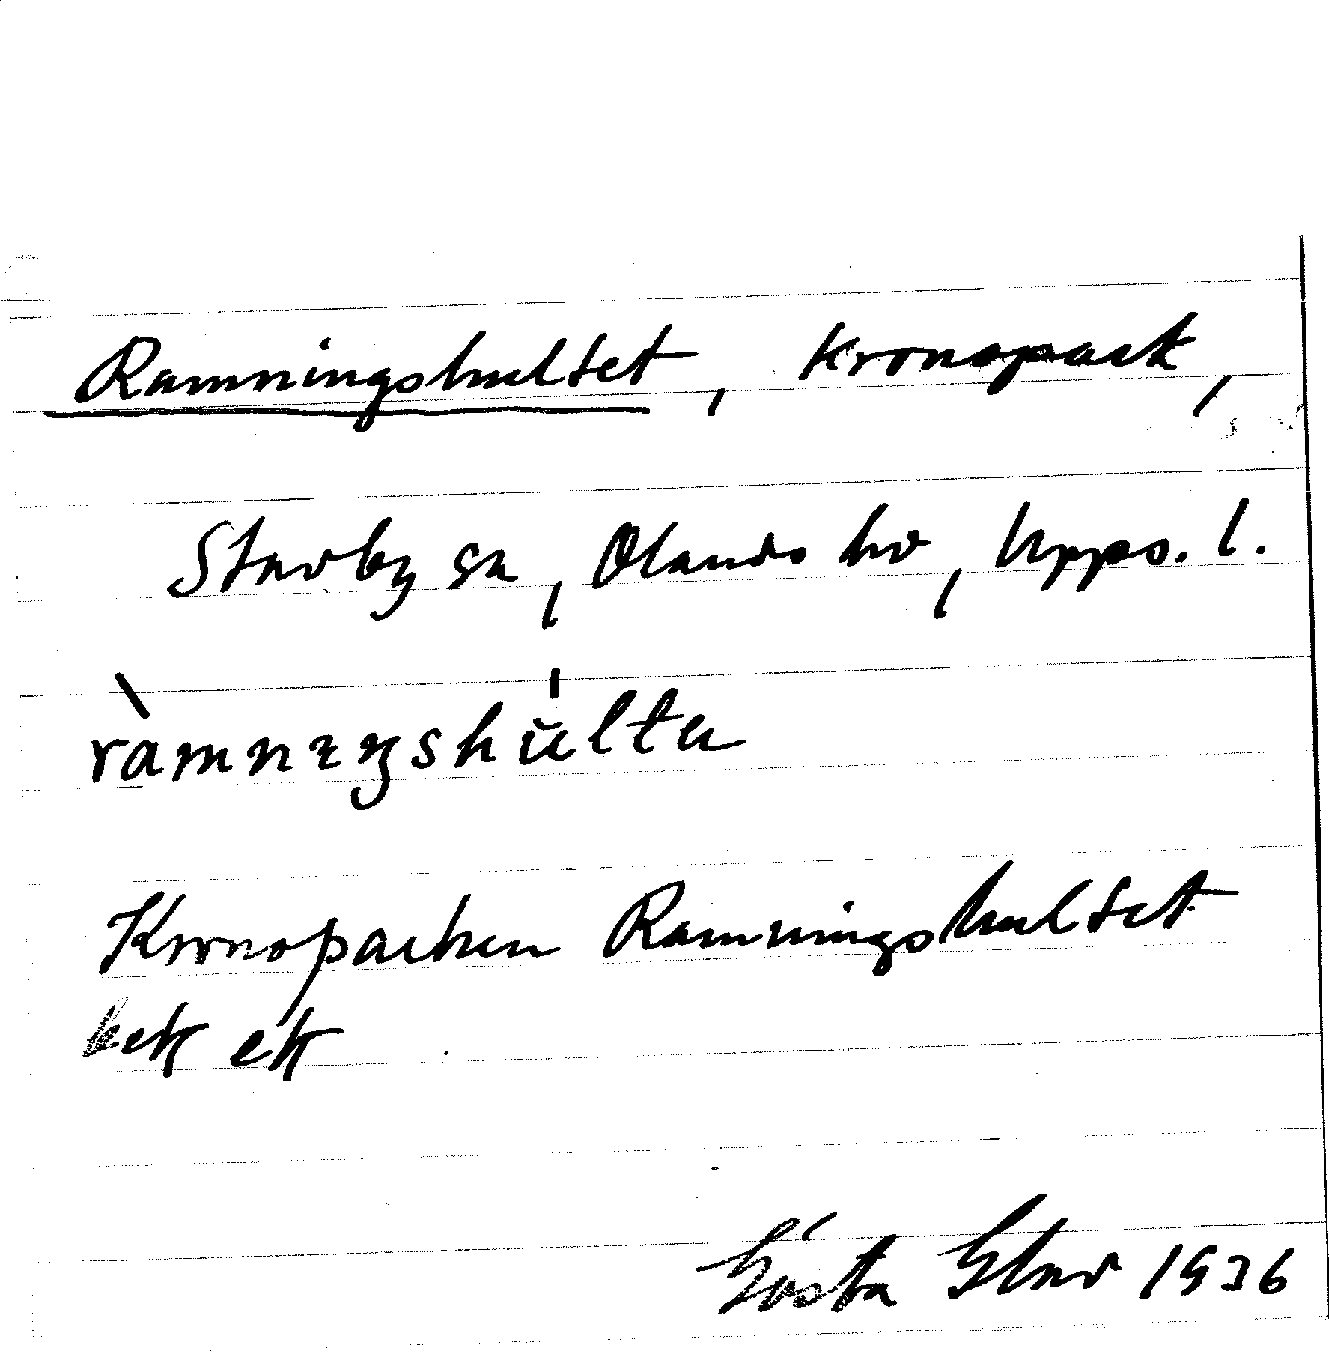 Ramningshultet, Kronopark,
Stavby sn, Olands hd, Upps. l.
ràmnɪŋshŭlta
Kronoparken Ramningshultet
bek ek
Gösta Elav 1936